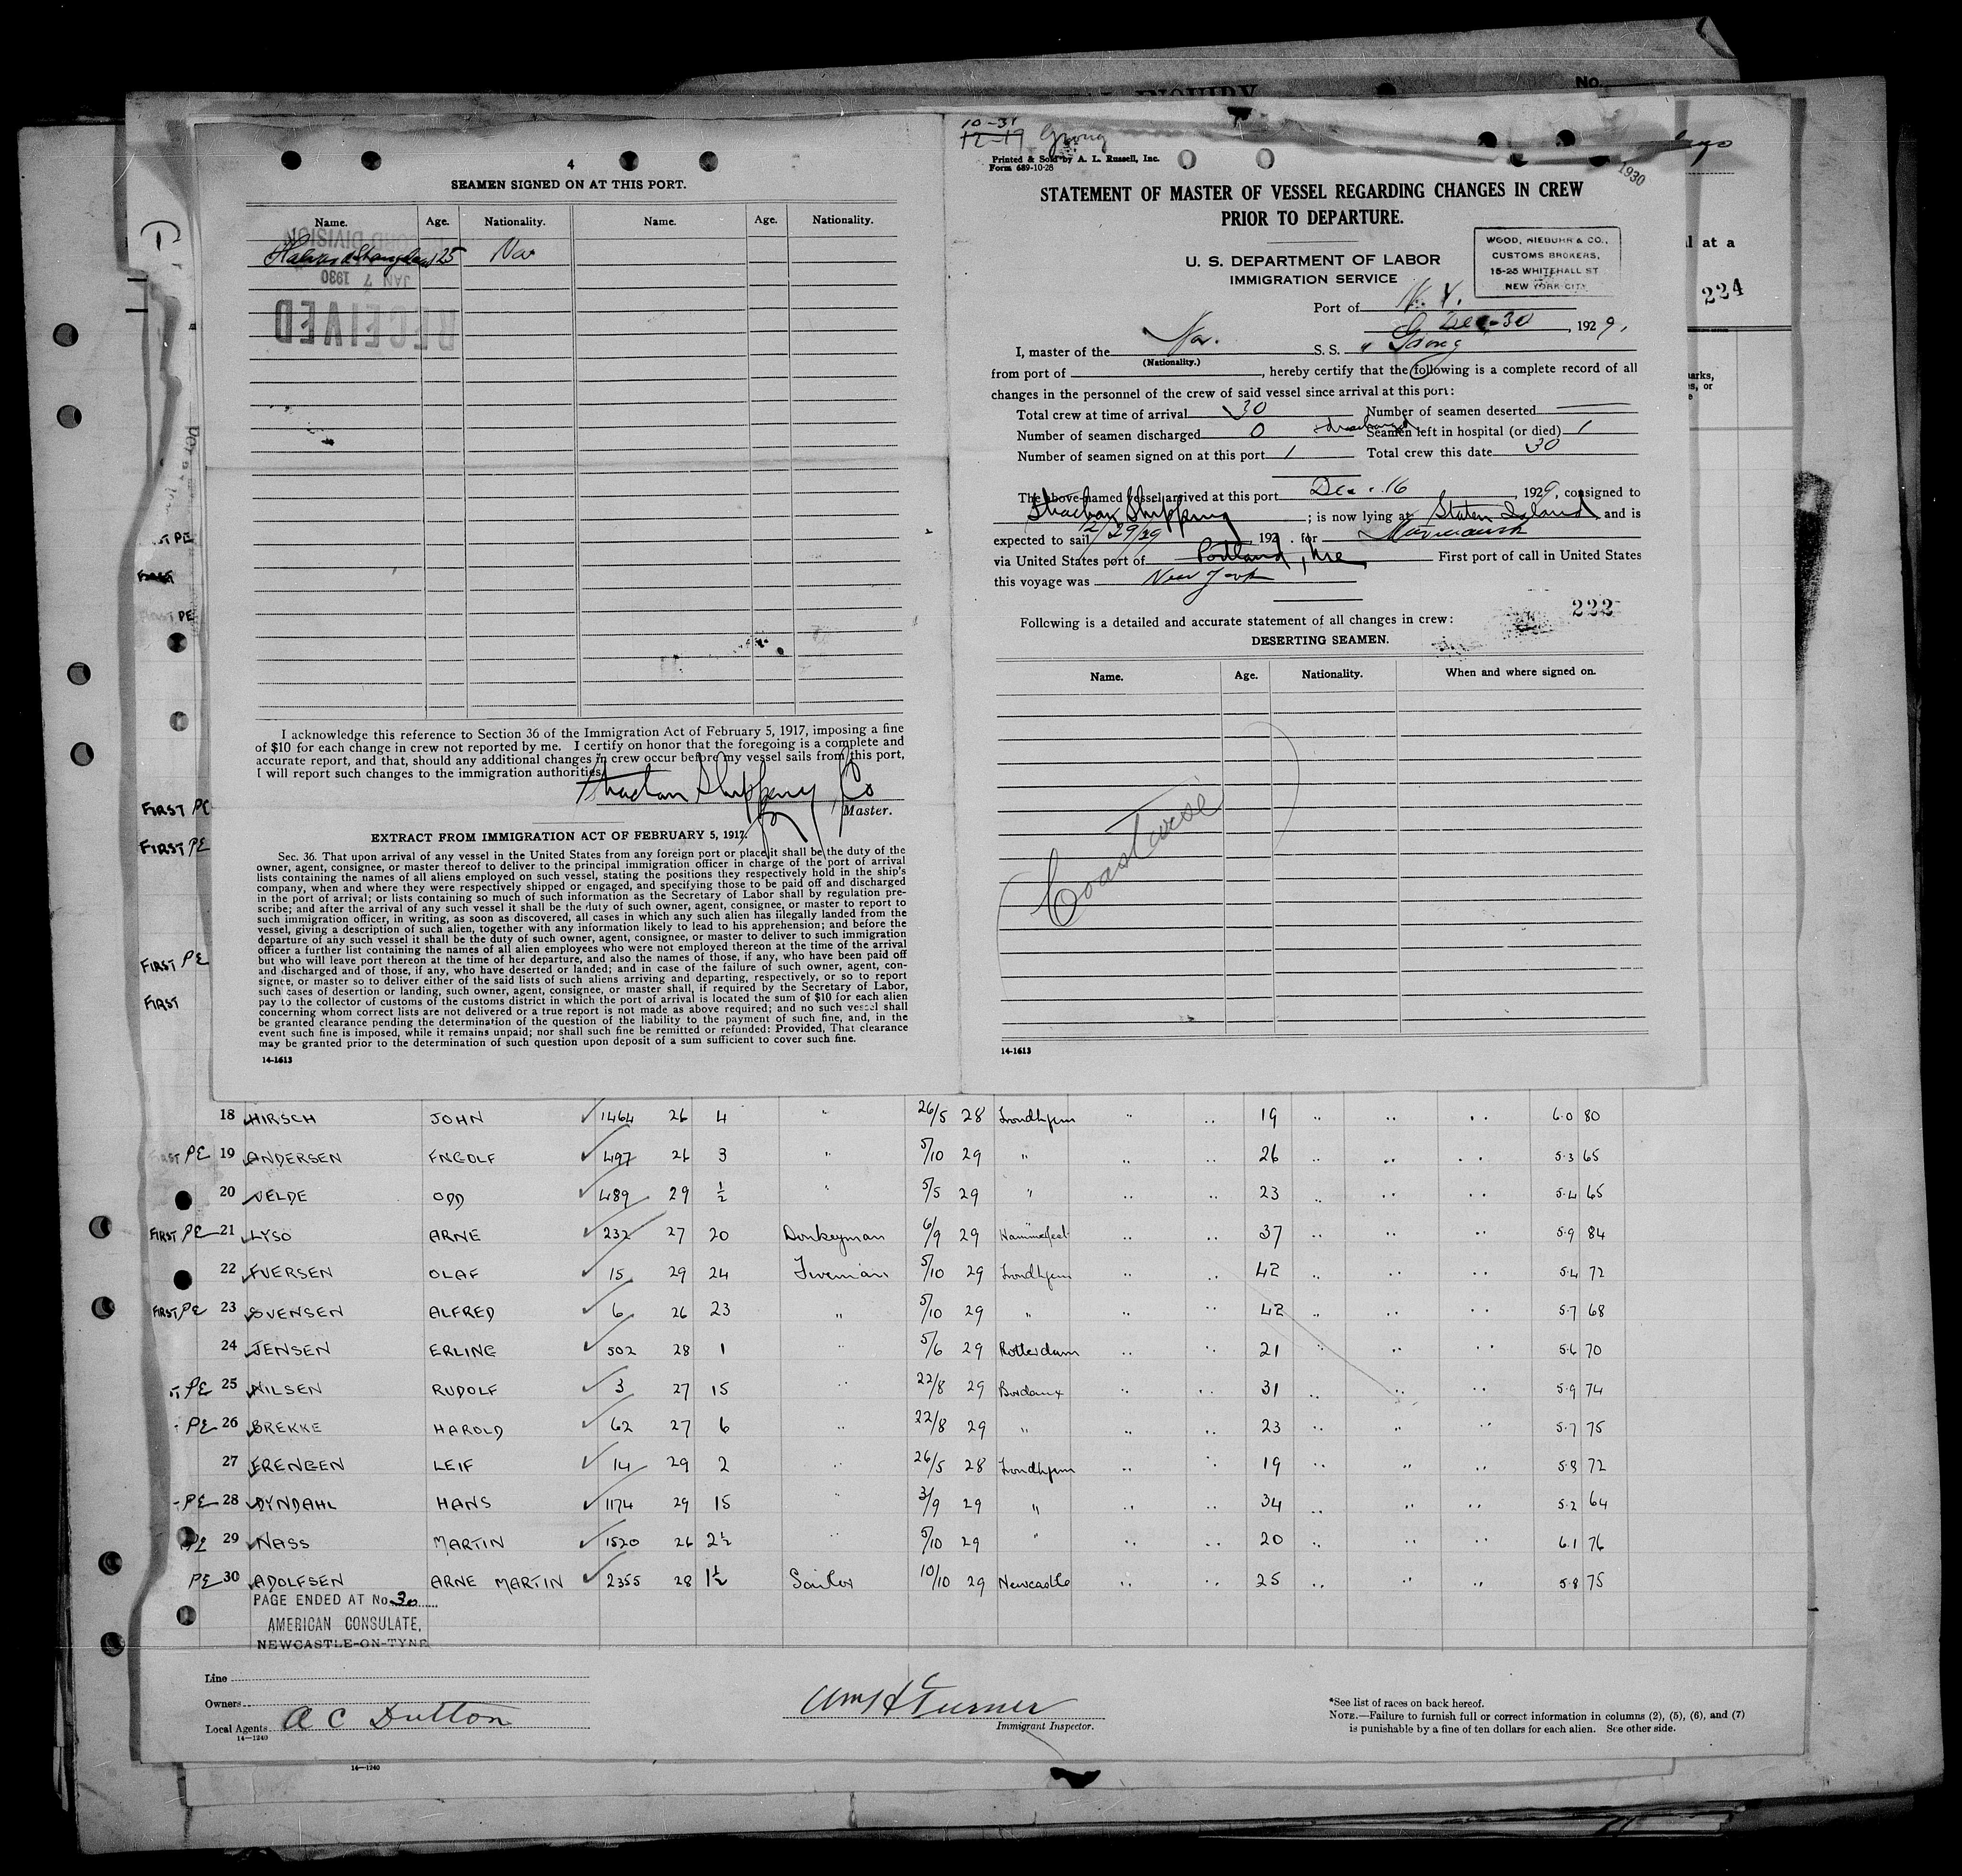 INQUIRY
No.
4
SEAMEN SIGNED ON AT THIS PORT.
Name. Age. Nationality. Name. Age. Nationality.
25 Nor
RECORD DIVISION
JAN 7 1930
RECEIVED
I acknowledge this reference to Section 36 of the Immigration Act of February 5, 1917, imposing a fine
of $10 for each change in crew not reported by me. I certify on honor that the foregoing is a complete and
accurate report, and that, should any additional changes in crew occur before my vessel sails from this port,
I will report such changes to the immigration authorities.
Strachan Shipping Co
Master.
EXTRACT FROM IMMIGRATION ACT OF FEBRUARY 5, 1917.
Sec. 36. That upon arrival of any vessel in the United States from any foreign port or place it shall be the duty of the
owner, agent, consignee, or master thereof to deliver to the principal immigration officer in charge of the port of arrival
lists containing the names of all aliens employed on such vessel, stating the positions they respectively hold in the ship's
company, when and where they were respectively shipped or engaged, and specifying those to be paid off and discharged
in the port of arrival; or lists containing so much of such information as the Secretary of Labor shall by regulation pre-
scribe; and after the arrival of any such vessel it shall be the duty of such owner, agent, consignee, or master to report to
such immigration officer, in writing, as soon as discovered, all cases in which any such alien has illegally landed from the
vessel, giving a description of such alien, together with any information likely to lead to his apprehension; and before the
departure of any such vessel it shall be the duty of such owner, agent, consignee, or master to deliver to such immigration
officer a further list containing the names of all alien employees who were not employed thereon at the time of the arrival
but who will leave port thereon at the time of her departure, and also the names of those, if any, who have been paid off
and discharged and of those, if any, who have deserted or landed; and in case of the failure of such owner, agent, con-
signee, or master so to deliver either of the said lists of such aliens arriving and departing, respectively, or so to report
such cases of desertion or landing, such owner, agent, consignee, or master shall, if required by the Secretary of Labor,
pay to the collector of customs of the customs district in which the port of arrival is located the sum of $10 for each alien
concerning whom correct lists are not delivered or a true report is not made as above required; and no such vessel shall
be granted clearance pending the determination of the question of the liability to the payment of such fine, and, in the
event such fine is imposed, while it remains unpaid; nor shall such fine be remitted or refunded: Provided, That clearance
may be granted prior to the determination of such question upon deposit of a sum sufficient to cover such fine.
14-1613
10-31
12-19 Grong
Printed & Sold by A. L. Russell, Inc.
Form 689-10-28
1930
STATEMENT OF MASTER OF VESSEL REGARDING CHANGES IN CREW
PRIOR TO DEPARTURE.
U. S. DEPARTMENT OF LABOR
IMMIGRATION SERVICE
WOOD, NIEBUHR & CO.,
CUSTOMS BROKERS,
15-25 WHITEHALL ST
NEW YORK CITY
Port of N. Y.
Dec-30, 1929,
I, master of the Nor. S. S. "Grong
(Nationality.)
from port of , hereby certify that the following is a complete record of all
changes in the personnel of the crew of said vessel since arrival at this port:
Total crew at time of arrival 30 Number of seamen deserted
Number of seamen discharged 0 discharged Seamen left in hospital (or died) 1
Number of seamen signed on at this port 1 Total crew this date 30
The above-named vessel arrived at this port Dec. 16, 1929, consigned to
Strachan Shipping ; is now lying at Staten Island and is
expected to sail 12/29/29, 192 . for Murmansk
via United States port of Portland, Me First port of call in United States
this voyage was New York
222
Following is a detailed and accurate statement of all changes in crew:
DESERTING SEAMEN.
Name. Age. Nationality. When and where signed on.
Coastwise
14-1613
l at a
224
arks,
s, or
e
PE
FIRST PE
FIRST PE
FIRST PE
FIRST PE
FIRST
18 HIRSCH JOHN 1464 26 4 " 26/5 28 Trondhjem " .. 19 .. .. .. 6.0 80
FIRST PE 19 ANDERSEN ENGOLF 497 26 3 " 5/10 29 " .. .. 26 .. .. .. 5.3 65
20 VELDE ODD 489 29 ½ " 5/5 29 " .. .. 23 .. .. .. 5.4 65
FIRST PE 21 LYSO ARNE 232 27 20 Donkeyman 6/9 29 Hammerfest .. .. 37 .. .. .. 5.9 84
22 IVERSEN OLAF 15 29 24 Fireman 5/10 29 Trondhjem .. .. 42 .. .. .. 5.4 72
FIRST PE 23 SVENSEN ALFRED 6 26 23 " 5/10 29 " .. .. 42 .. .. .. 5.7 68
24 JENSEN ERLING 502 28 1 " 5/6 29 Rotterdam .. .. 21 .. .. .. 5.6 70
PE 25 NILSEN RUDOLF 3 27 15 " 22/8 29 Bordaux .. .. 31 .. .. .. 5.9 74
PE 26 BREKKE HAROLD 62 27 6 " 22/8 29 " .. .. 23 .. .. .. 5.7 75
27 FRENGEN LEIF 14 29 2 " 26/5 28 Trondhjem .. .. 19 .. .. .. 5.8 72
PE 28 DYNDAHL HANS 1174 29 15 3/9 29 " .. .. 34 .. .. .. 5.2 64
PE 29 NASS MARTIN 1520 26 2½ " 5/10 29 " .. .. 20 .. .. .. 6.1 76
PE 30 ADOLFSEN ARNE MARTIN 2355 28 1½ Sailor 10/10 29 Newcastle .. .. 25 .. .. .. 5.8 75
PAGE ENDED AT No 30
AMERICAN CONSULATE,
NEWCASTLE-ON-TYNE
Line
Owners
Local Agents A C Dutton
14—1240
Wm H Turner
Immigrant Inspector.
*See list of races on back hereof.
NOTE.—Failure to furnish full or correct information in columns (2), (5), (6), and (7)
is punishable by a fine of ten dollars for each alien. See other side.
14—1240